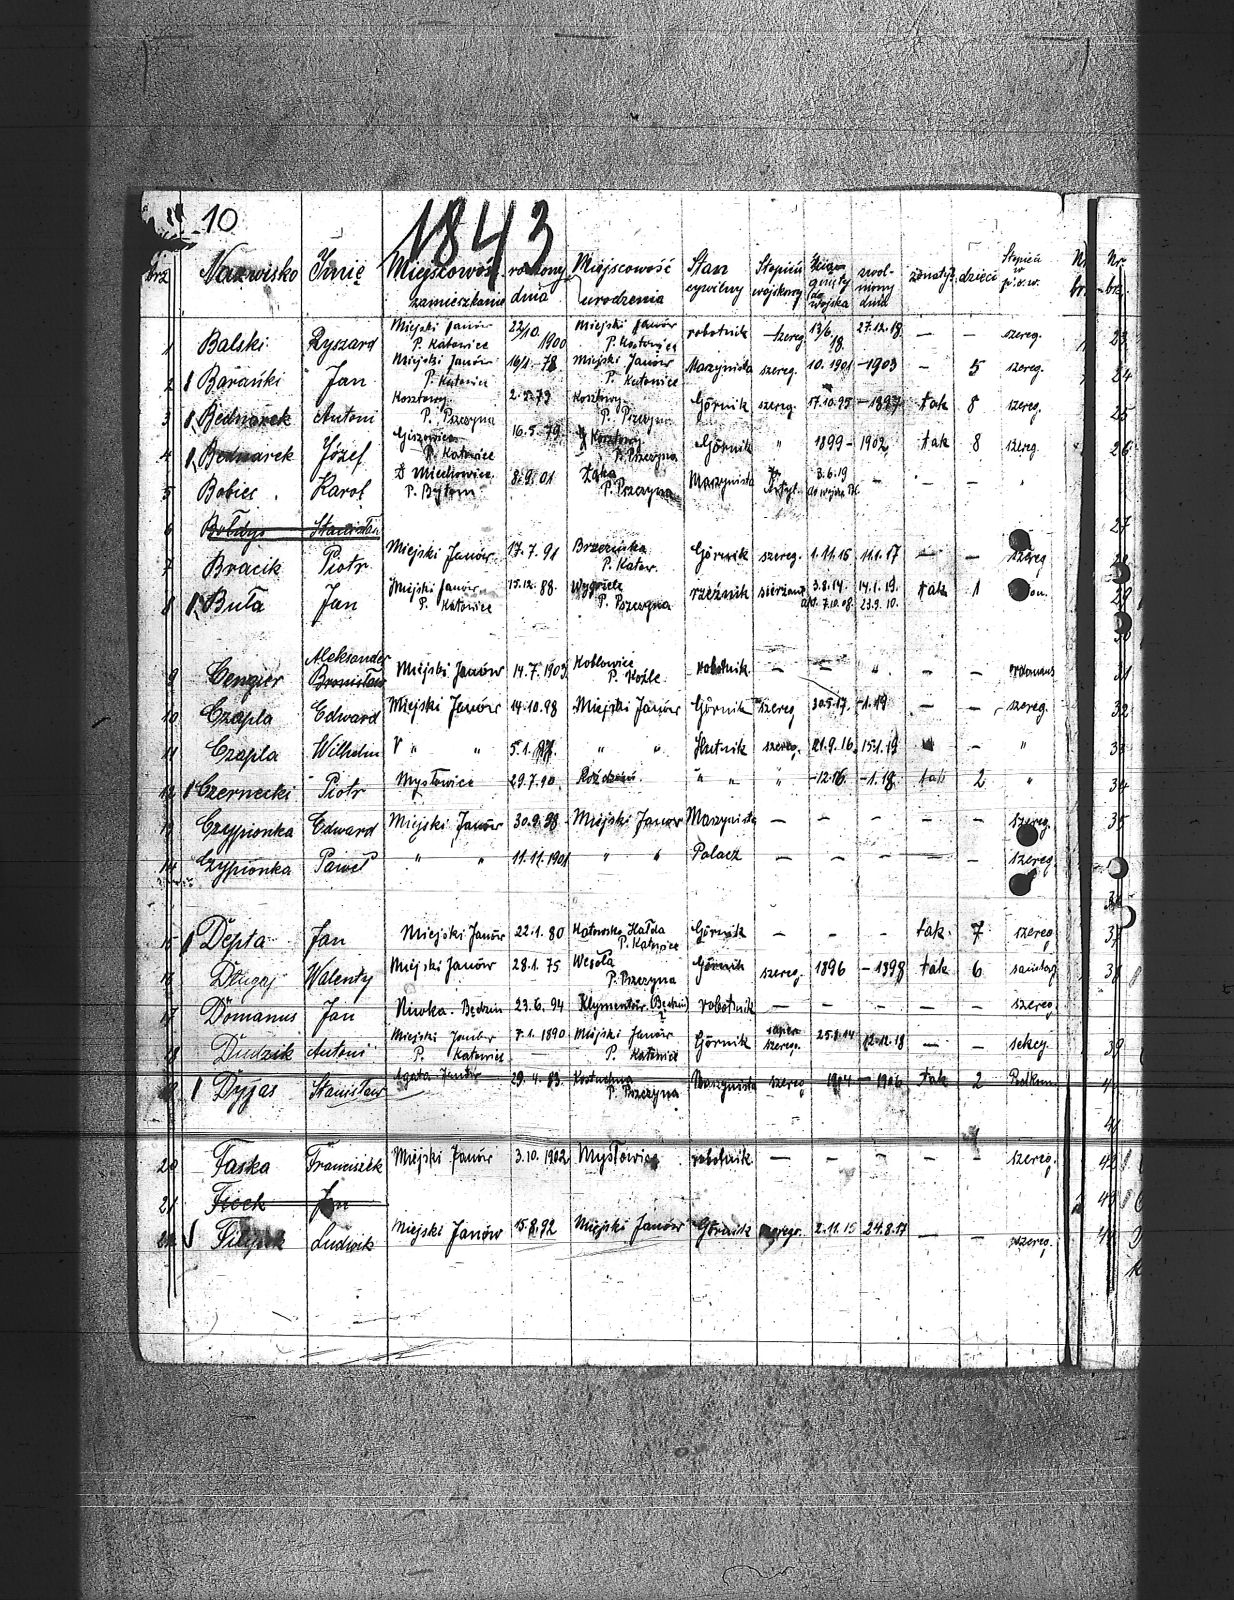 10
1843
Nazwisko Imię Miejscowość zamieszkania rodzony dnia Miejscowość urodzenia Stan cywilny Stopień wojskowy do wojska zwolniony dnia żonaty dzieci Stopień w p.o.w.
1 Balski Ryszard Miejski Janów P. Katowice 22/10. 1900 Miejski Janów P. Katowice robotnik szereg 13/6. 18. 27.12.18. — — szereg.
2 Barański Jan Miejski Janów P. Katowice 78 Miejski Janów P. Katowice Maszynista szereg. 10. 1901 -1903 — 5 szereg.
3 Bednarek Antoni Kosztowy P. Pszczyna Kosztowy P. Pszczyna Górnik szereg. 17.10.95 -1897 tak 8 szereg.
4 Bednarek Józef Giszowiec P. Katowice 16.5.79 Kosztowy P. Pszczyna Górnik " 1899 - 1902 tak 8 szereg.
5 Bobiec Karol Miechowice P. Bytom 8.9.01 P. Pszczyna Maszynista 3.6.19 — — —
6 Bołdys Stanisław
7 Bracik Piotr Miejski Janów 17.7.91 Brzezinka P. Katow. Górnik szereg. 1.11.16 11.1.17 — — szereg
8 Buła Jan Miejski Janów P. Katowice 15.12.88. P. Pszczyna rzeźnik sierżant 3.8.14. 7.10.08. 14.1.19. 23.9.10. tak 1
9 Cengier Aleksander Bronisław Miejski Janów 14.7.1903. Kobłowice P. Koźle robotnik — — — —
10 Czapla Edward Miejski Janów 14.10.98 Miejski Janów Górnik szereg 30.5.17. -1.19 — — szereg.
11 Czapla Wilhelm " " 5.1. " " Hutnik szereg. 21.9.16. 15.1.19 — "
12 Czernecki Piotr Mysłowice 29.7.90. Roździeń " " " -12.16 -1.18. tak 2 "
13 Czypionka Edward Miejski Janów 30.9. Miejski Janów Maszynista — — — — — szereg.
14 Czypionka Paweł " " 11.11.1901 " " Palacz — — — — — szereg.
15 Depta Jan Miejski Janów 22.1.80 Katowska Hałda P. Katowice Górnik — — — tak 7 szereg
16 Długaj Walenty Miejski Janów 28.1.75 Wesoła P. Pszczyna Górnik szereg. 1896 - 1898 tak 6 sanitarj
17 Domanus Jan Niwka. Będzin 23.6.94 Klymentów (Będzin) robotnik — — — — — szereg
18 Dudzik Antoni Miejski Janów P. Katowice 7.1.1890 Miejski Janów P. Katowice Górnik saper szereg. 25.8.14 12.12.18 — — sekcy.
19 Dyjas Stanisław Agata Janów 29.4.83. Kostuchna P. Pszczyna Maszynista szereg 1904 - 1906 tak 2 Podkom
20 Faska Franciszek Miejski Janów 3.10.1902 Mysłowice robotnik — — — — — szereg.
21 Fieck Jan
22 Ludwik Miejski Janów 15.8.92 Miejski Janów Górnik szereg. 2.11.15 24.8.17 — — szereg.